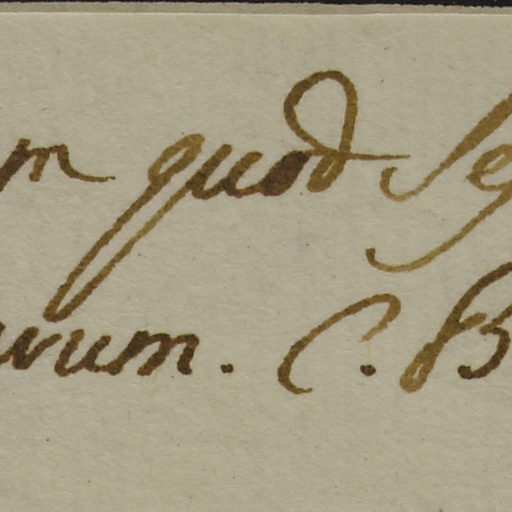 m quod Se
rum. C. B